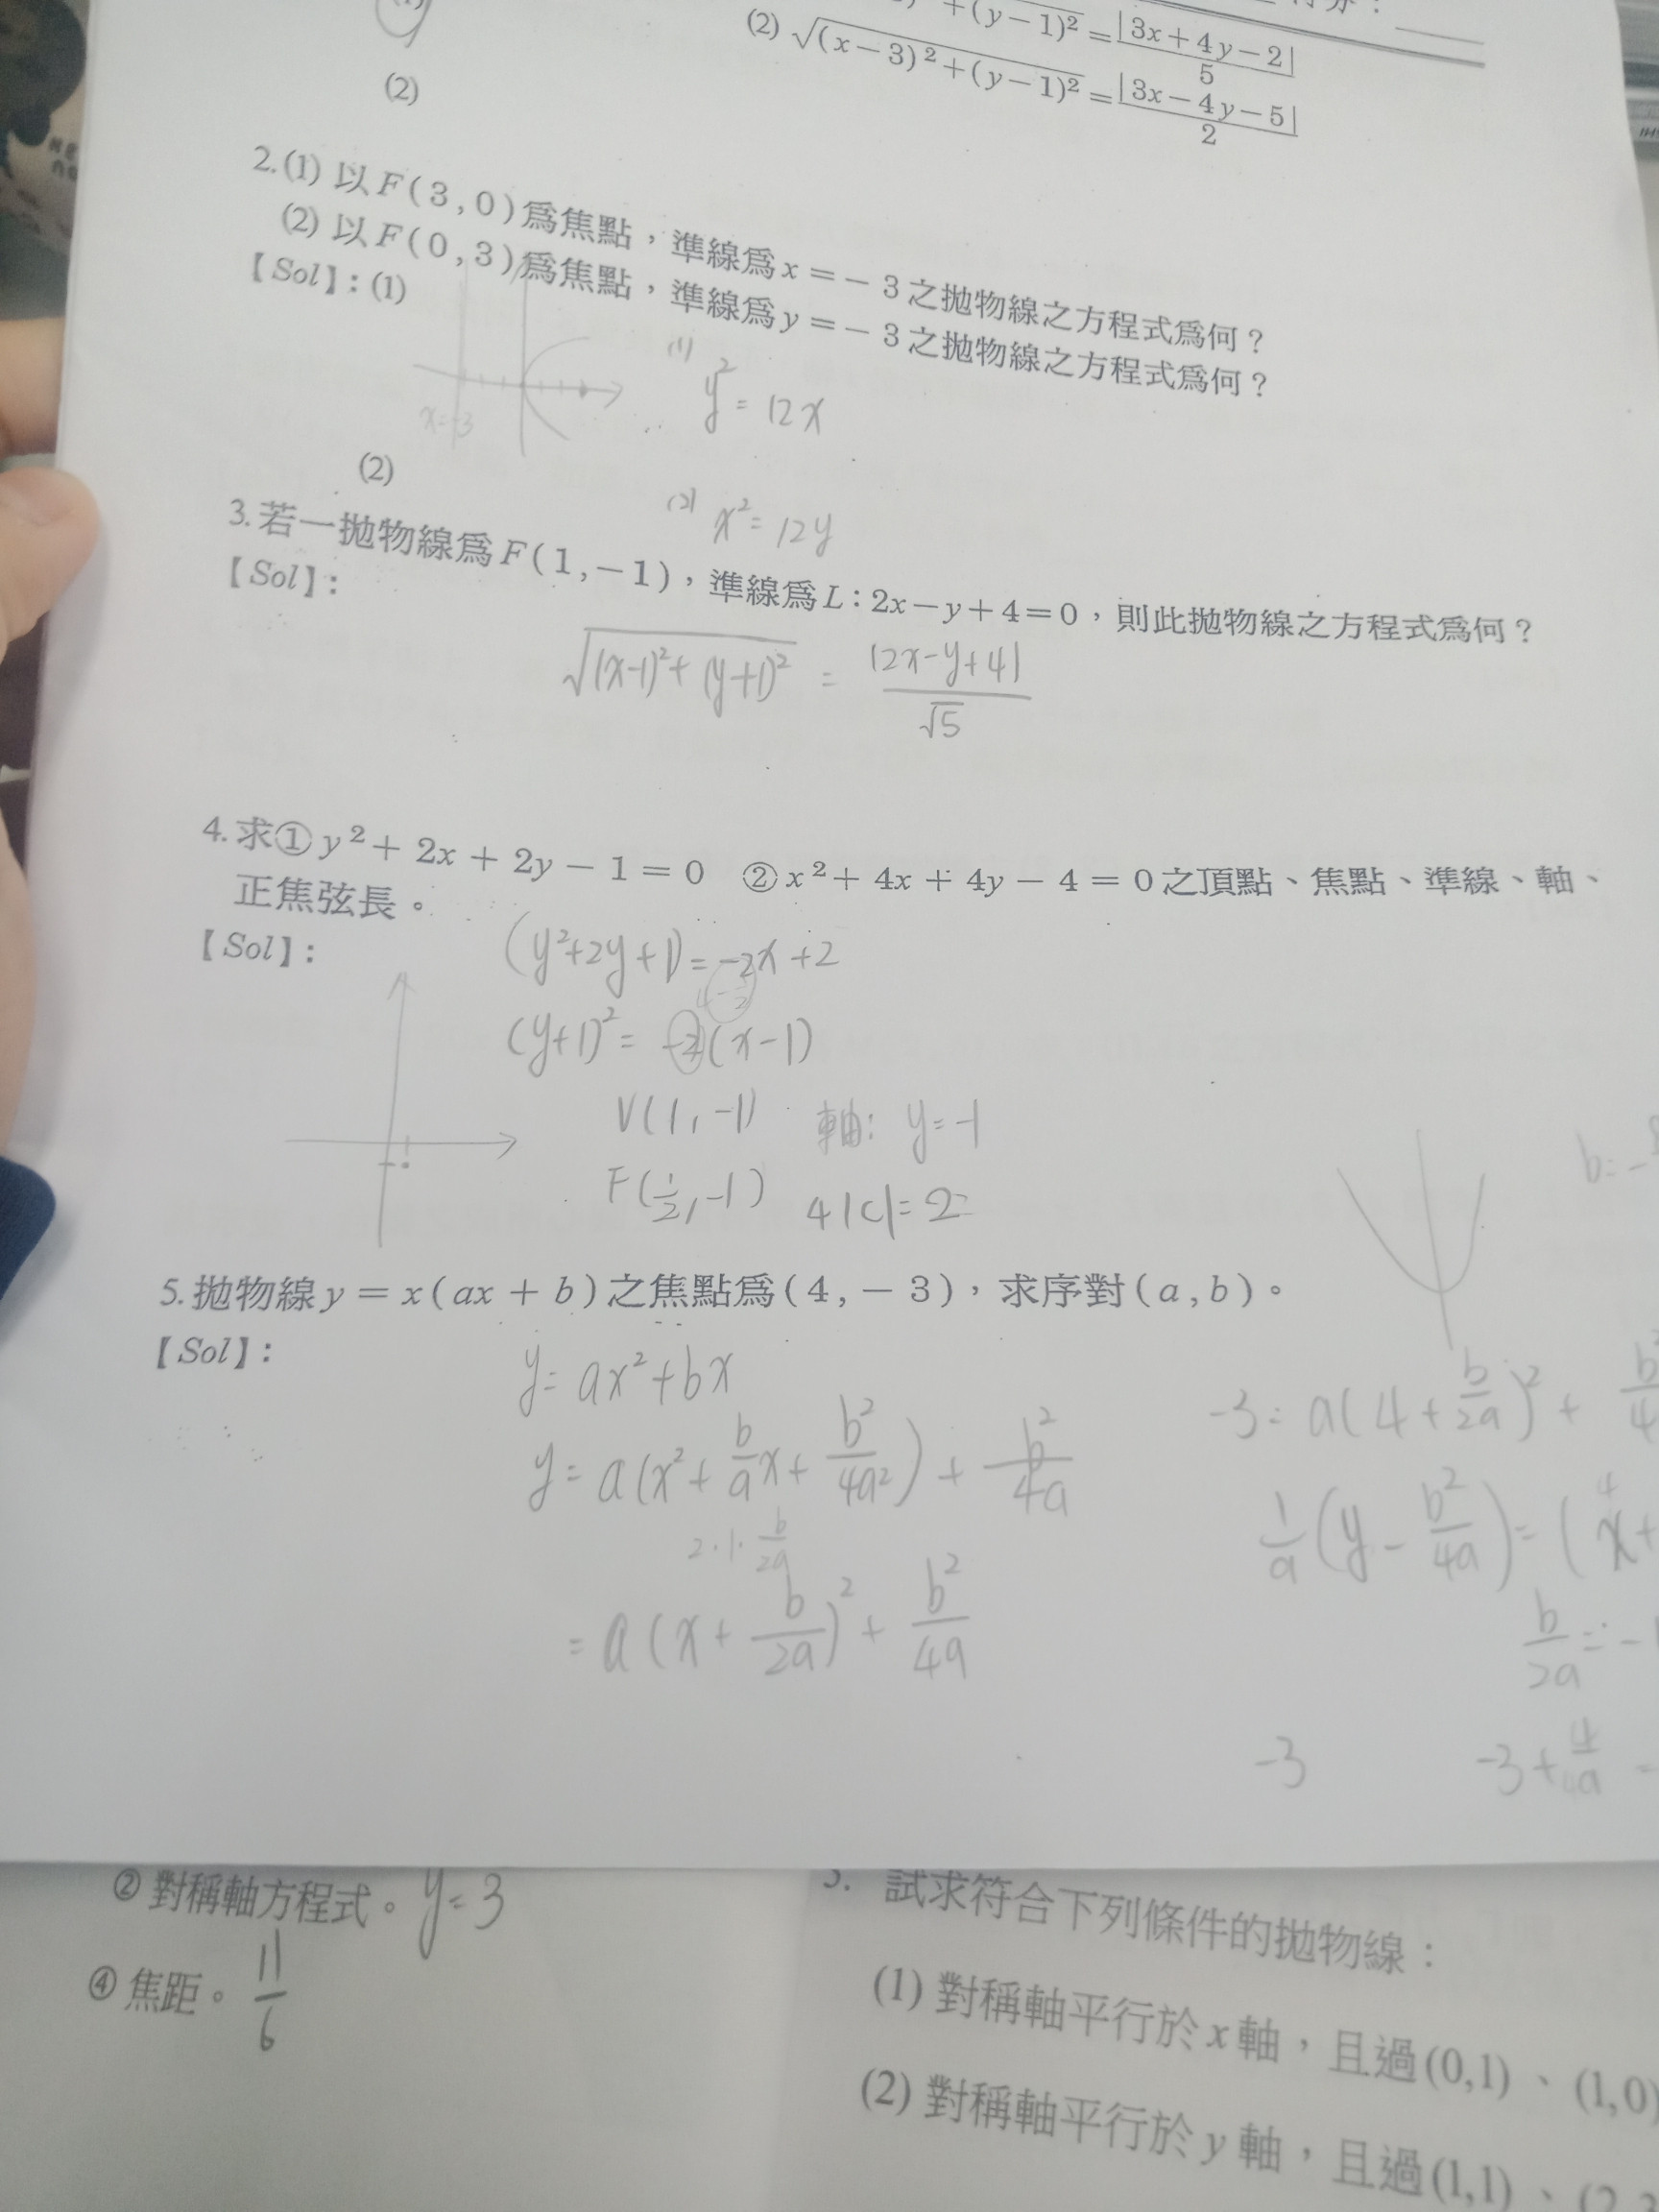 +(y－1)² = |3x＋4y－2| / 5
(2) √((x－3)²＋(y－1)²) = |3x－4y－5| / 2
(2)
2.(1) 以F(3,0)為焦點，準線為x＝－3之拋物線之方程式為何？
(2) 以F(0,3)為焦點，準線為y＝－3之拋物線之方程式為何？
【Sol】：(1)
x=-3
(1) y² = 12x
(2)
(2) x² = 12y
3.若一拋物線為F(1,－1)，準線為L：2x－y＋4＝0，則此拋物線之方程式為何？
【Sol】：
√((x-1)²+(y+1)²) = |2x-y+4| / √5
4.求①y²＋2x＋2y－1＝0　②x²＋4x＋4y－4＝0之頂點、焦點、準線、軸、
正焦弦長。
【Sol】：
(y²+2y+1) = -2x+2
(y+1)² = -2(x-1)
V(1,-1) 軸: y=-1
F(1/2,-1) 4|c|=2
b=-
5.拋物線y＝x(ax＋b)之焦點為(4,－3)，求序對(a,b)。
【Sol】：
y= ax²+bx
-3= a(4+b/2a)²+
y= a(x²+b/a x+b²/4a²)+b²/4a
1/a(y-b²/4a)=(x+
2·1·b/2a
= a(x+b/2a)²+b²/4a
b/2a=-
-3
-3+4/4a
②對稱軸方程式。y=3
④焦距。11/6
試求符合下列條件的拋物線：
(1) 對稱軸平行於x軸，且過(0,1)、(1,0)
(2) 對稱軸平行於y軸，且過(1,1)、